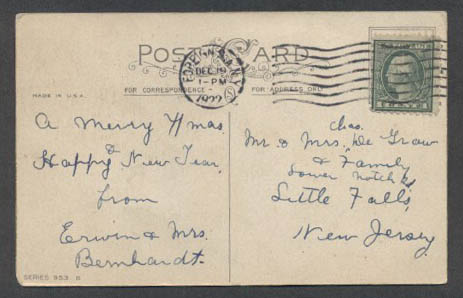 POST CARD
DEC 19
1-PM
1922
MADE IN U.S.A.
FOR CORRESPONDENCE
FOR ADDRESS ONLY
A Merry Xmas
&
Happy New Year
from
Erwin & Mrs.
Bernhardt.
Chas.
Mr. & Mrs. De Graw
& Family
Lower Notch Rd,
Little Falls,
New Jersey
SERIES 953. B